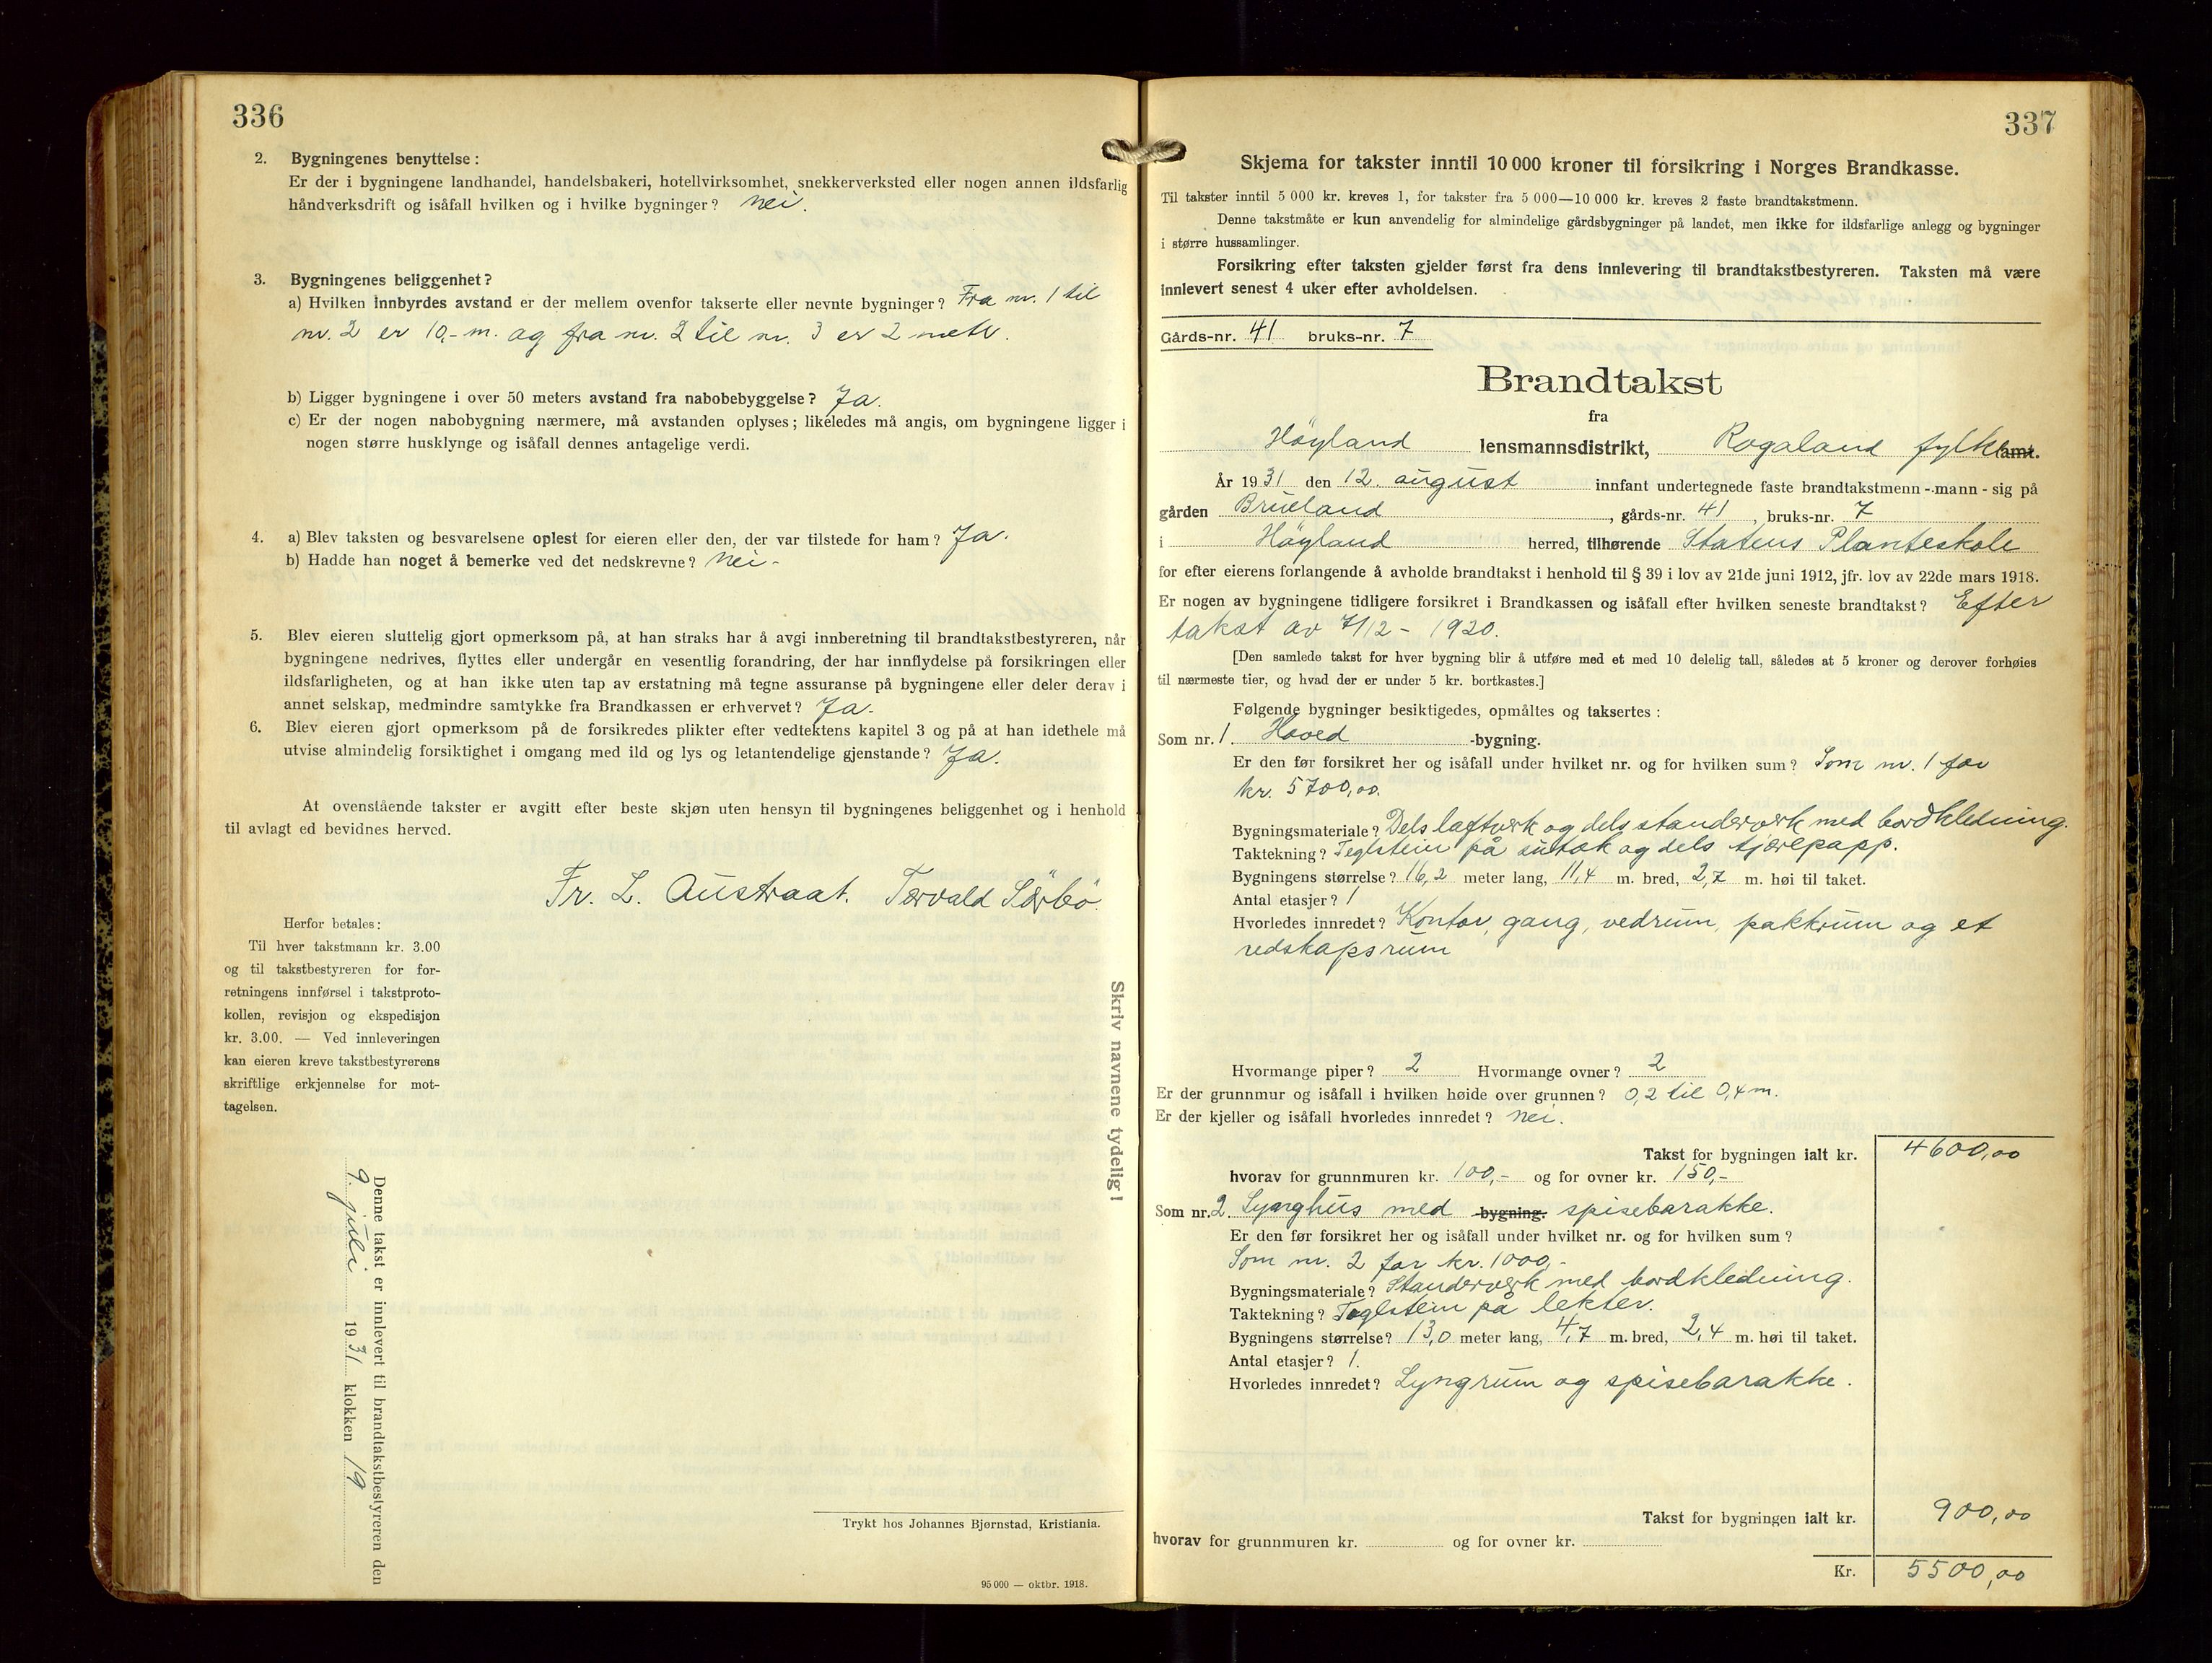 336
2. Bygningenes benyttelse:
Er der i bygningene landhandel, handelsbakeri, hotellvirksomhet, snekkerverksted eller nogen annen ildsfarlig
håndverksdrift og isåfall hvilken og i hvilke bygninger? nei.
3. Bygningenes beliggenhet?
a) Hvilken innbyrdes avstand er der mellem ovenfor takserte eller nevnte bygninger? Fra nr. 1 til
nr. 2 er 10,- m. og fra nr. 2 til nr. 3 er 2 metr.
b) Ligger bygningene i over 50 meters avstand fra nabobebyggelse? Ja.
c) Er der nogen nabobygning nærmere, må avstanden oplyses; likeledes må angis, om bygningene ligger i
nogen større husklynge og isåfall dennes antagelige verdi.
4. a) Blev taksten og besvarelsene oplest for eieren eller den, der var tilstede for ham? Ja.
b) Hadde han noget å bemerke ved det nedskrevne? Nei-
5. Blev eieren sluttelig gjort opmerksom på, at han straks har å avgi innberetning til brandtakstbestyreren, når
bygningene nedrives, flyttes eller undergår en vesentlig forandring, der har innflydelse på forsikringen eller
ildsfarligheten, og at han ikke uten tap av erstatning må tegne assuranse på bygningene eller deler derav i
annet selskap, medmindre samtykke fra Brandkassen er erhvervet? Ja.
6. Blev eieren gjort opmerksom på de forsikredes plikter efter vedtektens kapitel 3 og på at han idethele må
utvise almindelig forsiktighet i omgang med ild og lys og letantendelige gjenstande? Ja.
At ovenstående takster er avgitt efter beste skjøn uten hensyn til bygningenes beliggenhet og i henhold
til avlagt ed bevidnes herved.
Fr. L. Austraat. Torvald Sörbö.
Herfor betales:
Til hver takstmann kr. 3.00
og til takstbestyreren for for-
retningens innførsel i takstproto-
kollen, revisjon og ekspedisjon
kr. 3.00. — Ved innleveringen
kan eieren kreve takstbestyrerens
skriftlige erkjennelse for mot-
tagelsen.
Skriv navnene tydelig!
Denne takst er innlevert til brandtakstbestyreren den
9. juli 1931 klokken 19
Trykt hos Johannes Bjørnstad, Kristiania.
95 000 — oktbr. 1918.
337
Skjema for takster inntil 10 000 kroner til forsikring i Norges Brandkasse.
Til takster inntil 5 000 kr. kreves 1, for takster fra 5 000—10 000 kr. kreves 2 faste brandtakstmenn.
Denne takstmåte er kun anvendelig for almindelige gårdsbygninger på landet, men ikke for ildsfarlige anlegg og bygninger
i større hussamlinger.
Forsikring efter taksten gjelder først fra dens innlevering til brandtakstbestyreren. Taksten må være
innlevert senest 4 uker efter avholdelsen.
Gårds-nr. 41 bruks-nr. 7
Brandtakst
fra
Höyland lensmannsdistrikt, Rogaland fylke amt.
År 1931 den 12. august innfant undertegnede faste brandtakstmenn - mann - sig på
gården Brueland, gårds-nr. 41, bruks-nr. 7
i Höyland herred, tilhørende Statens Planteskole
for efter eierens forlangende å avholde brandtakst i henhold til § 39 i lov av 21de juni 1912, jfr. lov av 22de mars 1918.
Er nogen av bygningene tidligere forsikret i Brandkassen og isåfall efter hvilken seneste brandtakst? Efter
takst av 7/12 - 1920.
[Den samlede takst for hver bygning blir å utføre med et med 10 delelig tall, således at 5 kroner og derover forhøies
til nærmeste tier, og hvad der er under 5 kr. bortkastes.]
Følgende bygninger besiktigedes, opmåltes og taksertes:
Som nr. 1. Hoved -bygning.
Er den før forsikret her og isåfall under hvilket nr. og for hvilken sum? Som nr. 1 for
kr. 5700,00.
Bygningsmateriale? Dels laftverk og dels standerverk med bordkledning.
Taktekning? Teglstein på sutak og dels tjærepapp.
Bygningens størrelse? 16,2 meter lang, 11,4 m. bred, 2,7 m. høi til taket.
Antal etasjer? 1
Hvorledes innredet? Kontor, gang, vedrum, pakkrum og et
redskapsrum
Hvormange piper? 2 Hvormange ovner? 2
Er der grunnmur og isåfall i hvilken høide over grunnen? 0,2 til 0,4 m.
Er der kjeller og isåfall hvorledes innredet? nei.
Takst for bygningen ialt kr. 4600,00
hvorav for grunnmuren kr. 100,- og for ovner kr. 150,-
Som nr. 2. Lynghus med bygning. spisebarakke.
Er den før forsikret her og isåfall under hvilket nr. og for hvilken sum?
Som nr. 2 for kr. 1000,-
Bygningsmateriale? Standerverk med bordkledning.
Taktekning? Teglstein på lekter.
Bygningens størrelse? 13,0 meter lang, 4,7 m. bred, 2,4 m. høi til taket.
Antal etasjer? 1.
Hvorledes innredet? Lyngrum og spisebarakke.
Takst for bygningen ialt kr. 900,00
hvorav for grunnmuren kr. og for ovner kr.
Kr. 5500,00